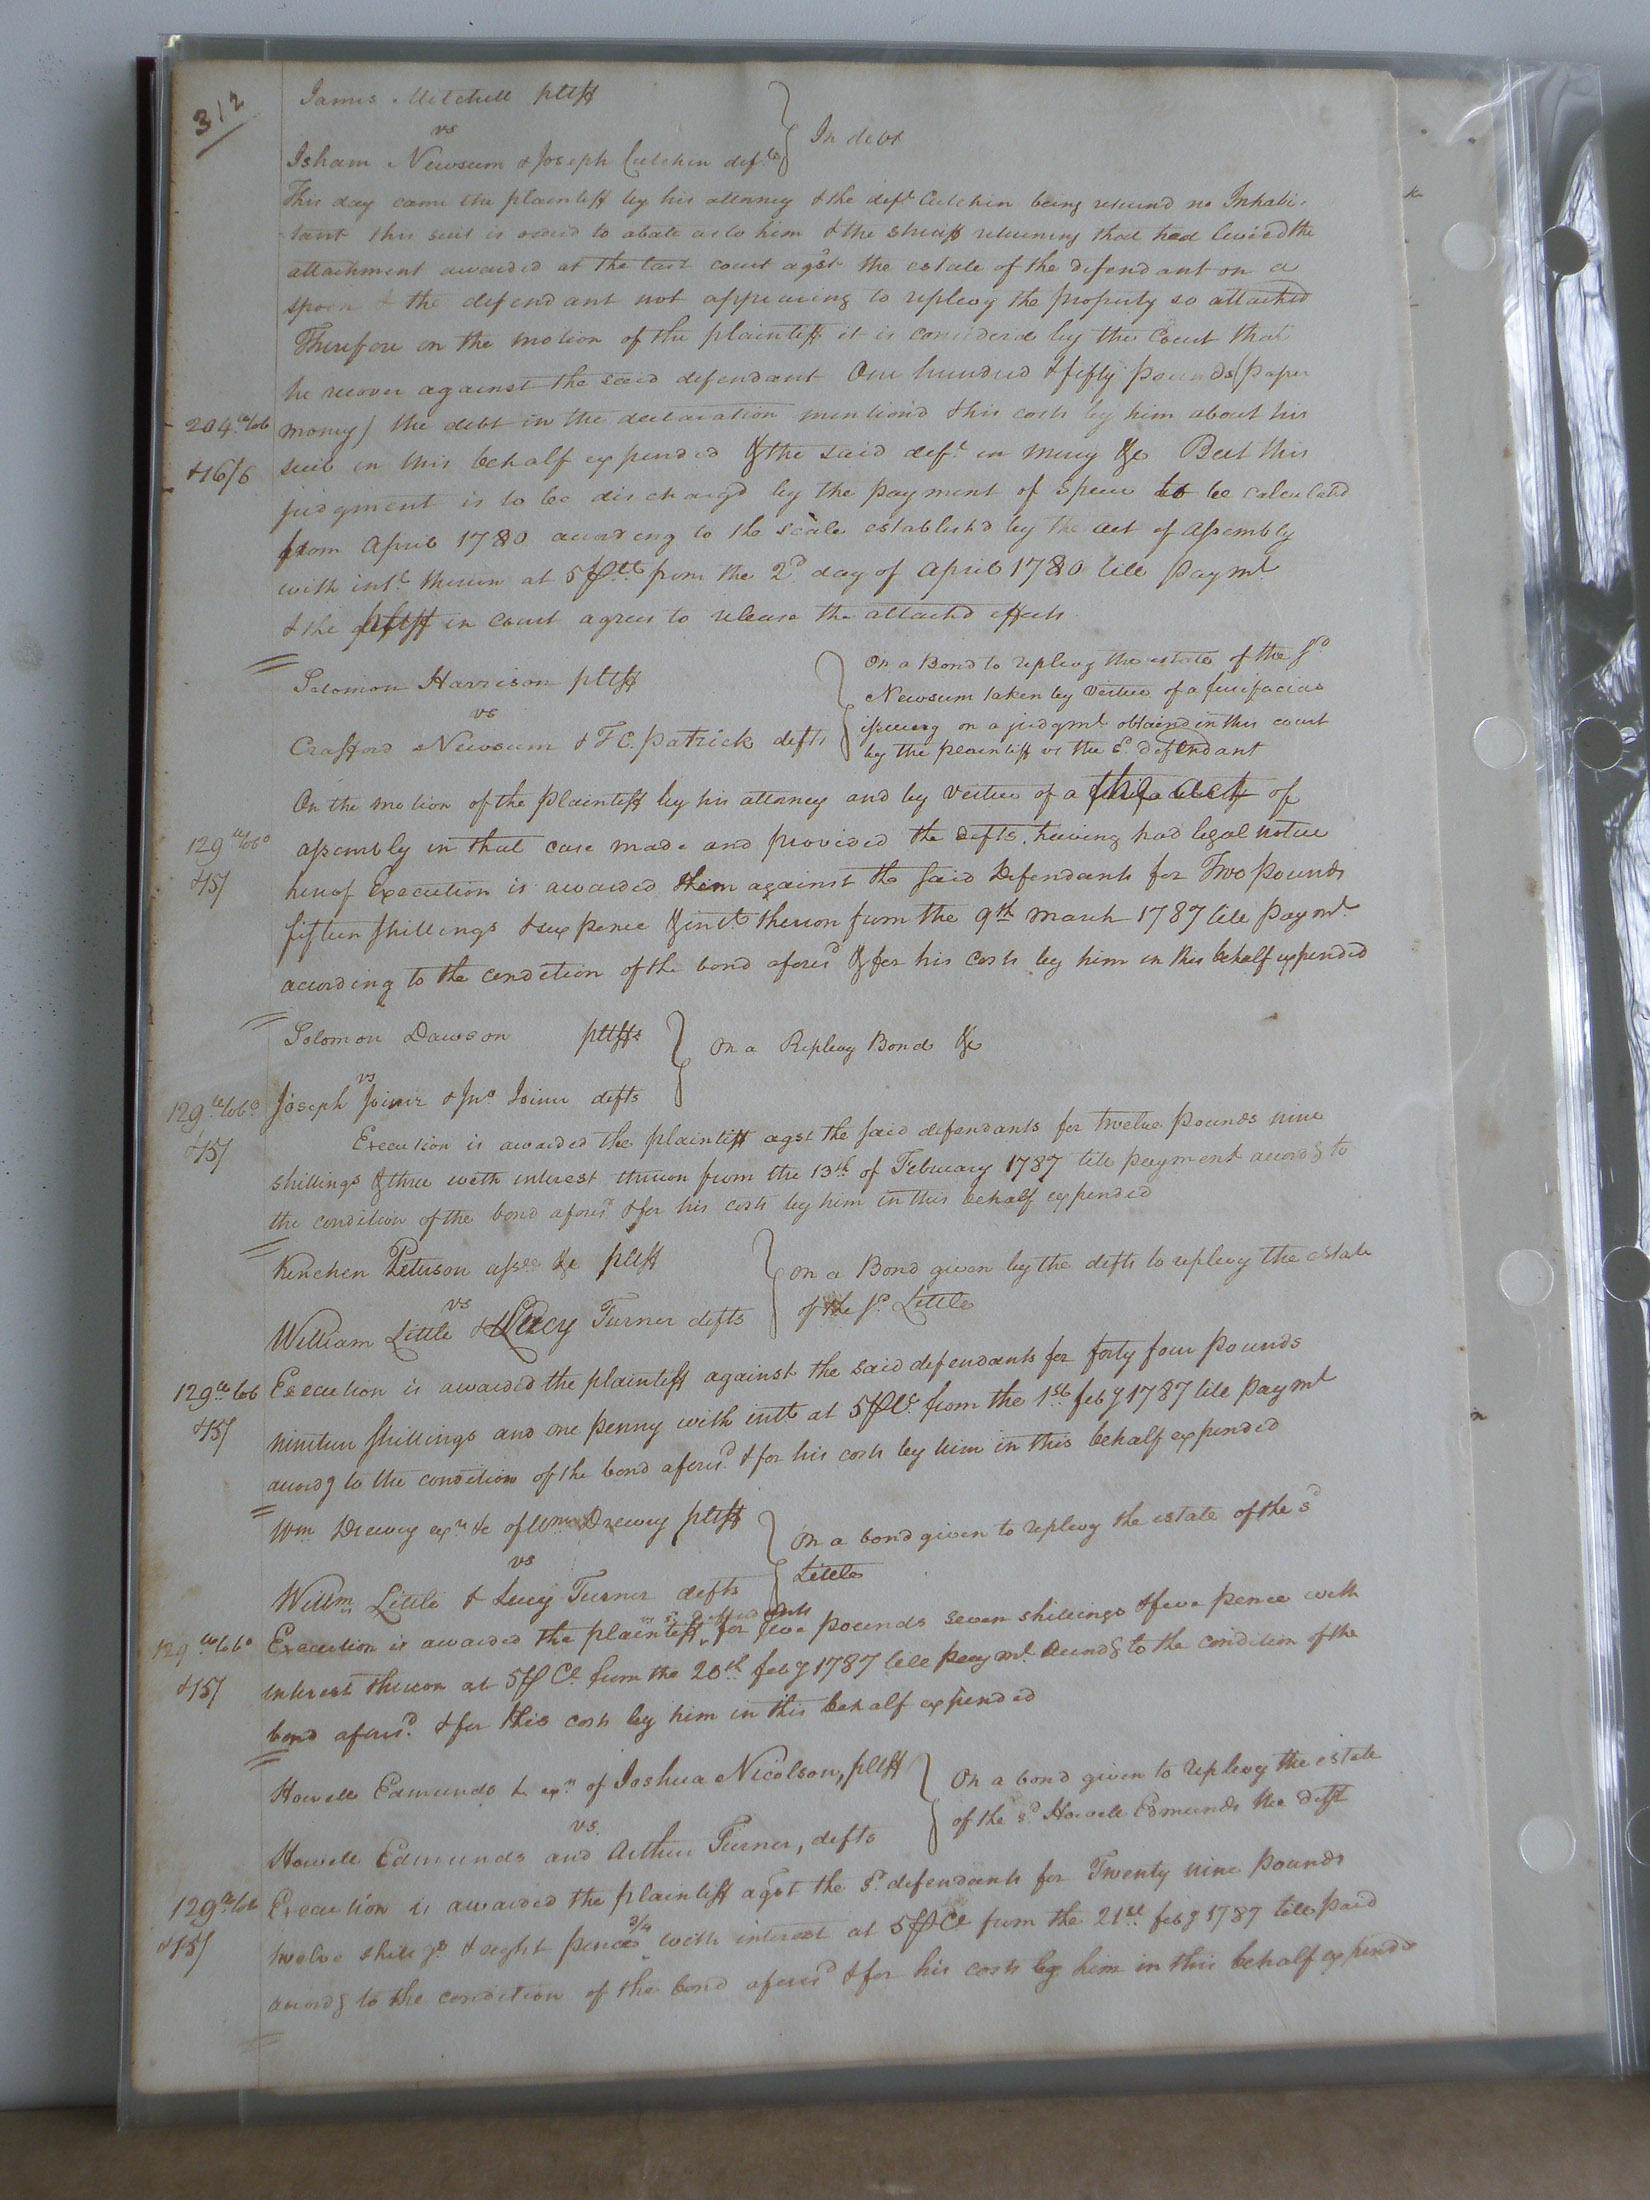 312
James Mitchell pltff
vs
Isham Newsum & Joseph Cutchin defts
In debt
This day came the plaintiff by his attorney & the deft Cutchin being returnd no Inhabi-
tant this suit is orderd to abate as to him & the sheriff returning that had levied the
attachment awarded at the last court agst the estate of the defendant on a
spoon & the defendant not appearing to replevy the property so attached
Therefore on the motion of the plaintiff it is considerd by the Court that
he recover against the said defendant One hundred & fifty pounds (paper
204 lb tob money) the debt in the declaration mention'd & his costs by him about his
&16/6 suit in this behalf expended & the said deft in mercy &c But this
judgment is to be discharg'd by the payment of specie to be calculated
from April 1780 according to the scale establish'd by the act of Assembly
with intt thereon at 5 p Ct from the 2d day of April 1780 till paymt
& the pltff in court agrees to release the attachd effects
Solomon Harrison pltff
vs
Crafford Newsum & T C. Patrick defts
On a Bond to replevy the estate of the sd
Newsum taken by vertue of a fierifacias
issueing on a judgmt obtaind in this court
by the plaintiff vs the sd defendant
On the motion of the Plaintiff by his attorney and by vertue of a the act of
129 lb tobo assembly in that case made and provided the defts. having had legal notice
&15/ hereof Execution is awarded them against the said Defendants for Two pounds
fifteen shillings & six pence & intt thereon from the 9th March 1787 till paymt
according to the condition of the bond aforesd & for his costs by him in this behalf expended
Solomon Dawson pltffs
vs
129 lb tobo Joseph Joiner & Jno Joiner defts
On a Replevy Bond &c
&15/ Execution is awarded the plaintiff agst the said defendants for twelve pounds nine
shillings & three with interest thereon from the 13th of February 1787 till payment accordg to
the condition of the bond aforesd & for his costs by him in this behalf expended
Kinchen Peterson assee &c pltff
vs
William Little & Lucy Turner defts
On a Bond given by the defts to replevy the estate
of the sd Little
129 lb tob Execution is awarded the plaintiff against the said defendants for forty four pounds
&15/ nineteen shillings and one penny with intt at 5 p Ct from the 1st feby 1787 till paymt
accordg to the condition of the bond aforesd & for his costs by him in this behalf expended
Wm Drewry exr &c of Wm Drewry pltff
vs
Willm Little & Lucy Turner defts
On a bond given to replevy the estate of the sd
Little
vs sd defendants
129 lb tobo Execution is awarded the plaintiff for five pounds seven shillings & five pence with
&15/ interest thereon at 5 p Ct from the 20th feby 1787 till paymt accordg to the condition of the
bond aforesd & for this costs by him in this behalf expended
Howell Edmunds exr of Joshua Nicolson, pltff
vs.
Howell Edmunds and Arthur Turner, defts
On a bond given to replevy the estate
of the sd Howell Edmunds the deft
129 lb tob Execution is awarded the plaintiff agst the sd defendants for Twenty nine pounds
&15/ twelve shillgs & eight pence 3/4 with interest at 5 p Ct from the 21st feby 1787 till paid
accordg to the condition of the bond aforesd & for his costs by him in this behalf expended